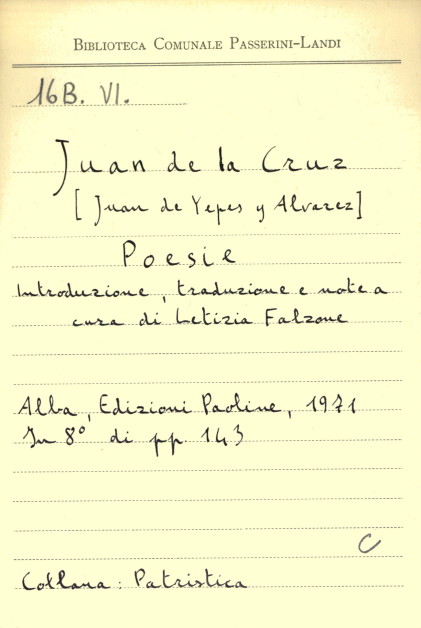 BIBLIOTECA COMUNALE PASSERINI-LANDI
16B. VI.
Juan de la Cruz
[Juan de Yepes y Alvarez]
Poesie
Introduzione, traduzione e note a
cura di Letizia Falzone
Alba, Edizioni Paoline, 1971
In 8° di pp. 143
C
Collana: Patristica